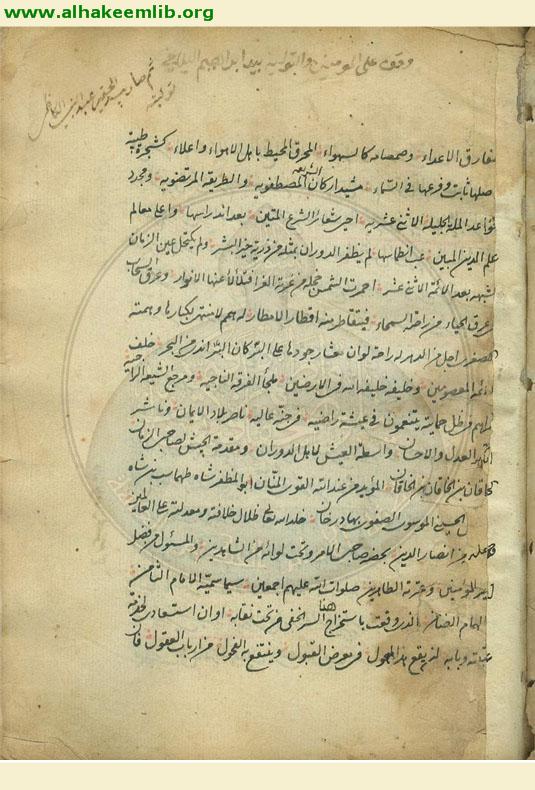 www.alhakeemlib.org
وقف على المومنين والتولية بيد
ثم صار بيد
توليته
مفارق الاعداء وصمصامه كالسهواء المحرق المحيط باهل الاهواء واعلاء كشجرة طيبة
اصلها ثابت وفرعها في السماء مشيد اركان الشريعة المصطفوية والطريقة المرتضوية ومجدد
قواعد الملة الجليلة الاثنى عشرية احيى شعائر الشرع المتين بعد اندراسها واعلى معالم
علم الدين المبين غب انطماسها لم يظفر الدوران بمثله من ذرية خير البشر ولم يكتحل عين الزمان
لشبهه بعد الائمة الاثنى عشر احمرت الشمس خجلة من غرته الغراء وعرق السحاب
عرق الحياء من راحته السمحاء فيتقاطر منه اقطار الامطار له همم لا منتهى لكبارها وهمته
الصغرى اجل من الدهر له راحة لو ان معشار جودها على البر كان البر اندى من البحر خلف
الائمة المعصومين وخليفة خليفة الله في الارضين ملجأ الفرقة الناجية ومرجع الشيعة
في ظل حمايته يتنعمون في عيشة راضية في جنة عالية ناصر بلاد الايمان وناشر
العدل والاحسان واسطة العيش لاهل الدوران ومقدمة الجيش لصاحب الزمان
خاقان بن الخاقان بن الخاقان المؤيد من عند الله القوى المنان ابو المظفر شاه طهماسب بن شاه
الحسيني الموسوى الصفوى بهادر خان خلد الله تعالى ظلال خلافته ومعدلته على العالمين
وجعله من انصار الدين بحضرة صاحب الامر وتحت لوائه من الشاهدين والمسئول من فضل
امير المومنين وعترته الطاهرين صلوات الله عليهم اجمعين سيما سميه الامام الثامن
الهمام الضامن الذى وقعت باستخراج هذا السر الخفى من تحت نقابه اوان استسعادى بخدمة
عتباته وبابه ان يقع هذا المعمول في معرض القبول وينتفع به الفحول من ارباب العقول فان